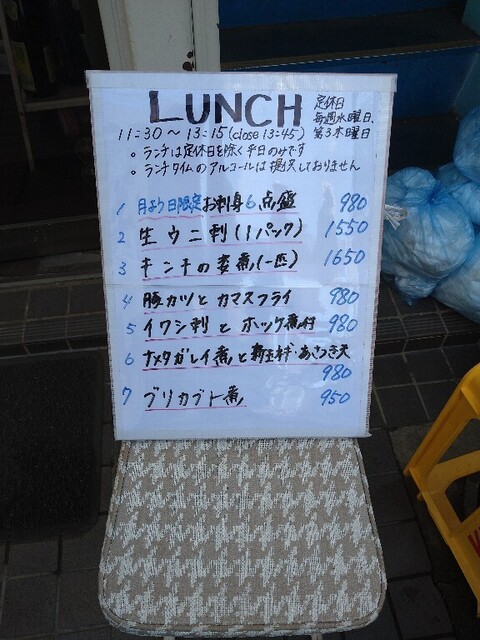 LUNCH
定休日
毎週水曜日、
第3木曜日
11:30～13:15(close 13:45)
。ランチは定休日を除く平日のみです
。ランチタイムのアルコールは提供しておりません
1 限定お刺身6点盛 980
2 生ウニ刺(1パック) 1550
3 キンキの姿煮(一匹) 1650
4 豚カツとカマスフライ 980
5 イワシ刺とホッケ煮付 980
6 ナメタガレイ煮と新玉ネギ・あさつき天
980
7 ブリカブト煮 950